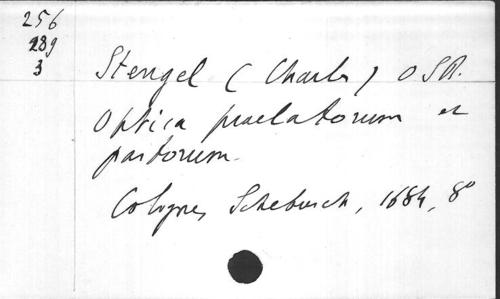 256
289
3
Stengel (Charles) OSB.
Optica praelatorum et
pastorum.
Cologne, Schebusch, 1684, 8°